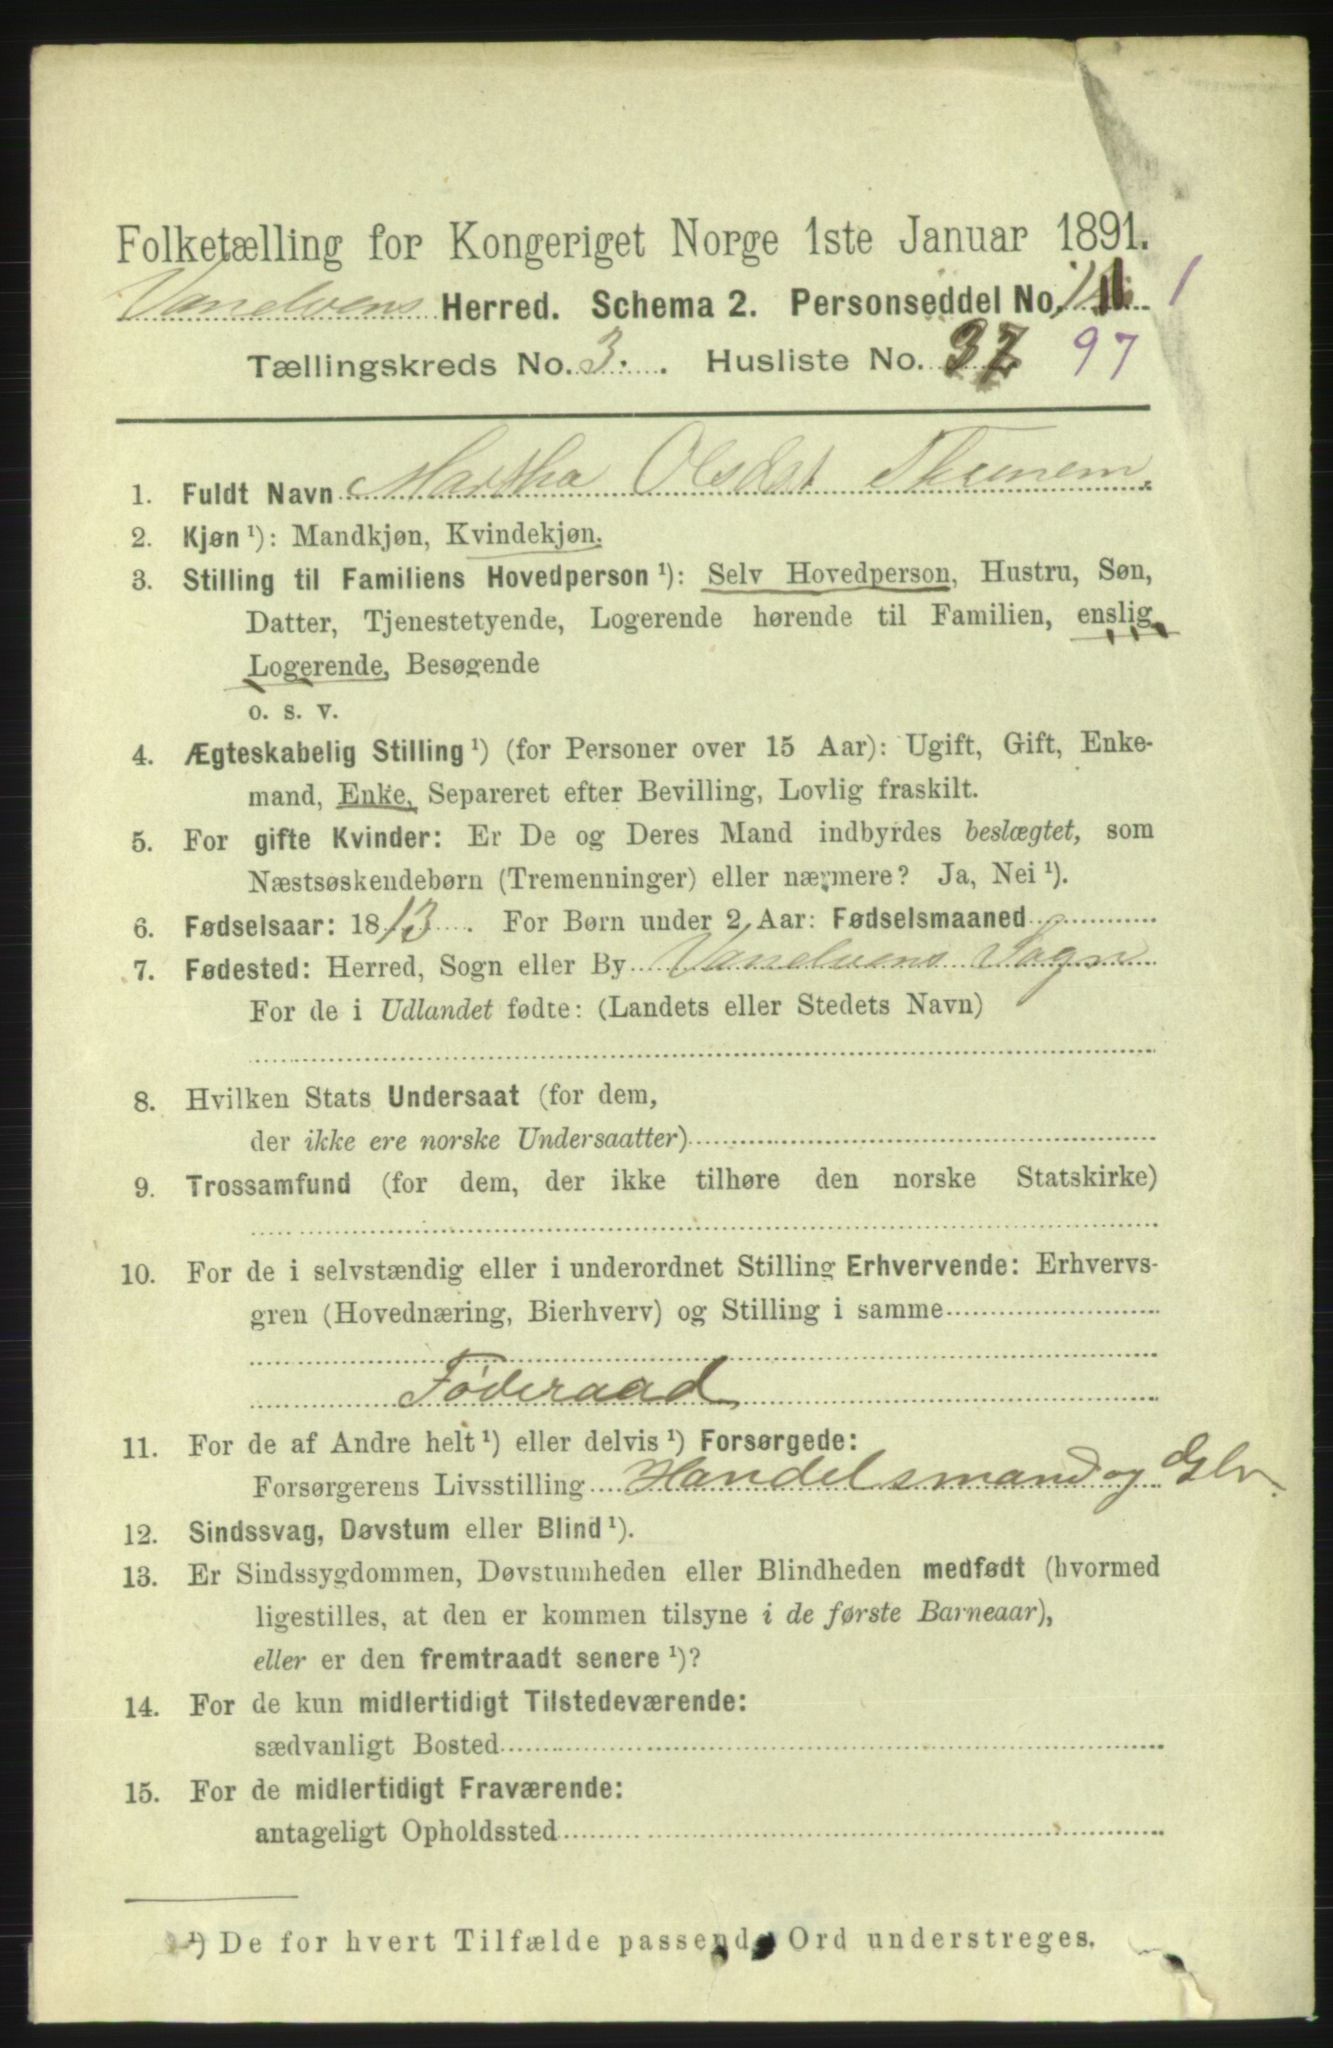 Folketælling for Kongeriget Norge 1ste Januar 1891.
Vanelvens Herred. Schema 2. Personseddel No. 1 1
Tællingskreds No. 3. Husliste No. 37 97
1. Fuldt Navn Martha Olsdat Thunem
2. Kjøn ¹): Mandkjøn, Kvindekjøn.
3. Stilling til Familiens Hovedperson ¹): Selv Hovedperson, Hustru, Søn,
Datter, Tjenestetyende, Logerende hørende til Familien, enslig
Logerende, Besøgende
o. s. v.
4. Ægteskabelig Stilling ¹) (for Personer over 15 Aar): Ugift, Gift, Enke-
mand, Enke, Separeret efter Bevilling, Lovlig fraskilt.
5. For gifte Kvinder: Er De og Deres Mand indbyrdes beslægtet, som
Næstsøskendebørn (Tremenninger) eller nærmere? Ja, Nei ¹).
6. Fødselsaar: 1813. For Børn under 2 Aar: Fødselsmaaned
7. Fødested: Herred, Sogn eller By Vanelvens Sogn
For de i Udlandet fødte: (Landets eller Stedets Navn)
8. Hvilken Stats Undersaat (for dem,
der ikke ere norske Undersaatter)
9. Trossamfund (for dem, der ikke tilhøre den norske Statskirke)
10. For de i selvstændig eller i underordnet Stilling Erhvervende: Erhvervs-
gren (Hovednæring, Bierhverv) og Stilling i samme
Føderaad
11. For de af Andre helt ¹) eller delvis ¹) Forsørgede:
Forsørgerens Livsstilling Handelsmand og Glv.
12. Sindssvag, Døvstum eller Blind ¹).
13. Er Sindssygdommen, Døvstumheden eller Blindheden medfødt (hvormed
ligestilles, at den er kommen tilsyne i de første Barneaar),
eller er den fremtraadt senere ¹)?
14. For de kun midlertidigt Tilstedeværende:
sædvanligt Bosted
15. For de midlertidigt Fraværende:
antageligt Opholdssted
¹) De for hvert Tilfælde passende Ord understreges.